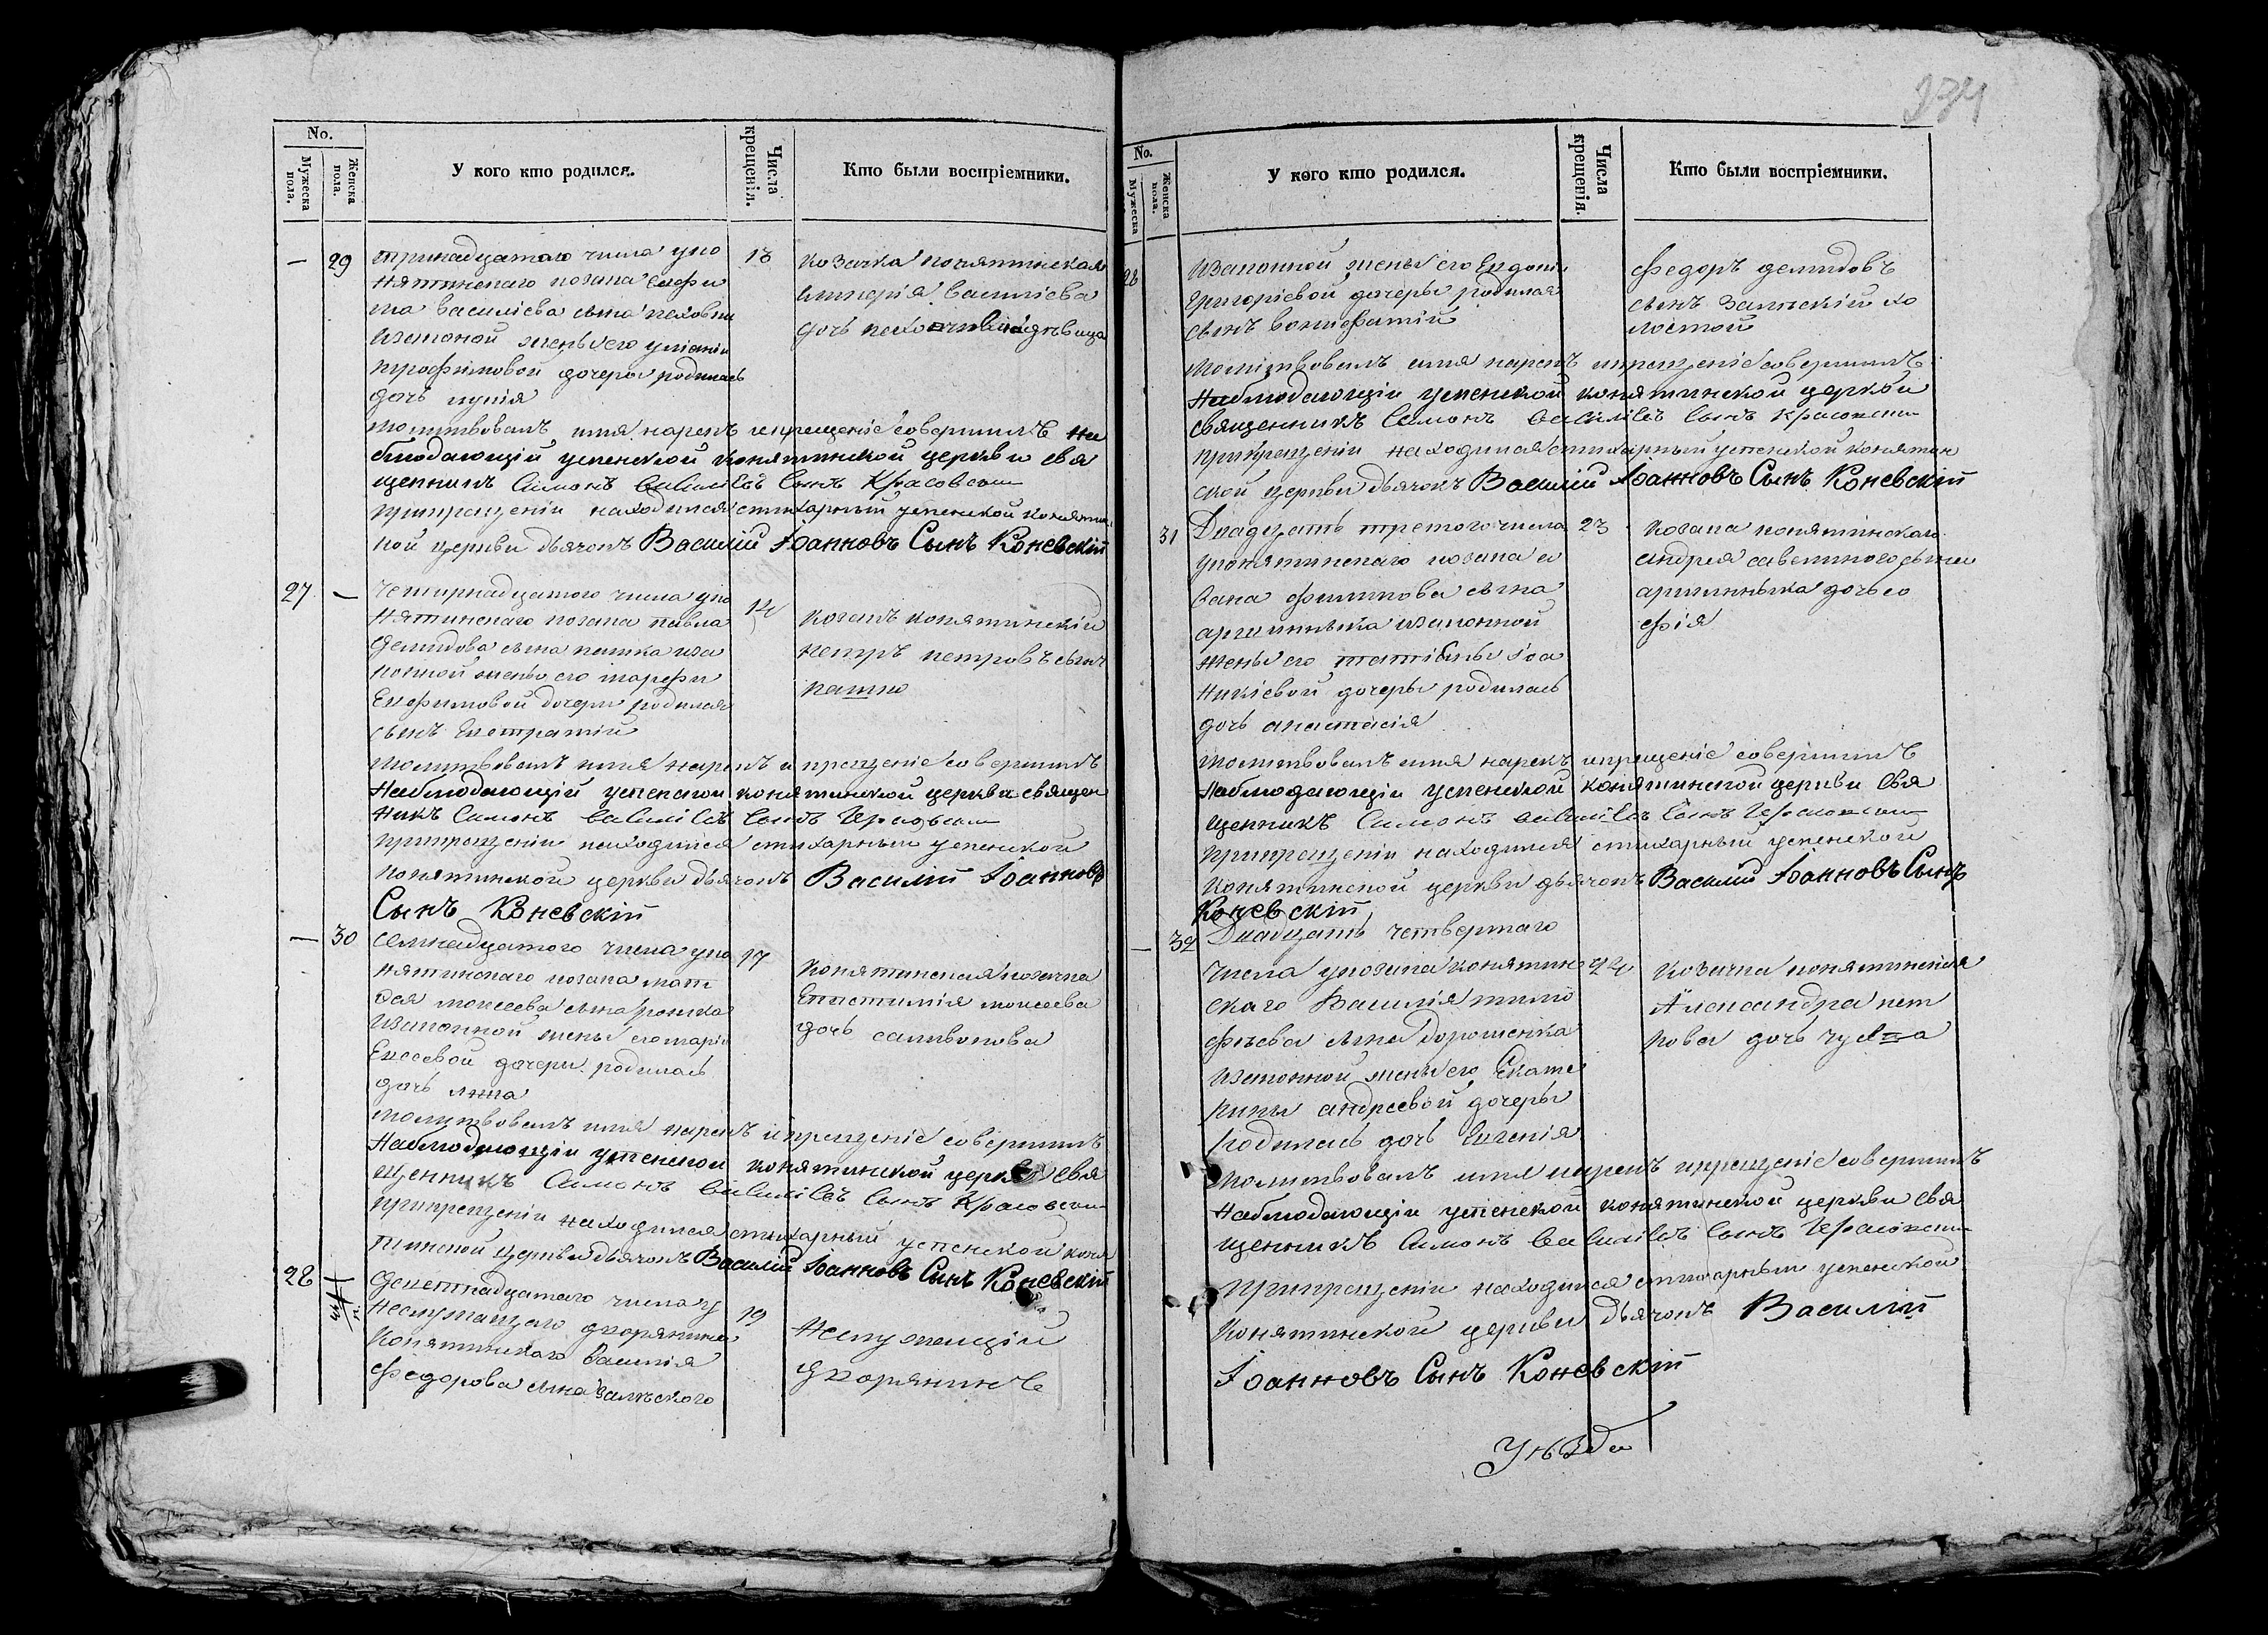 No.
Мужеска пола.
Женска пола.
У кого кто родился.
Числа крещенія.
Кто были воспріемники.
— 29 тринадцатого числа у ко
нятинскаго козака
василіева сына
законной жены его
трофимовой дочери родилась
дочь
13
козачка конятинская
василіева
дочь девица
молитвовалъ имя нарекъ и крещеніе совершилъ На
блюдающій успенской конятинской церкви свя
щенникъ Симонъ Василіевъ Сынъ Красовскій
при крещеніи находился стихарный успенской конятин
кой церкви дьячокъ Василій Іоанновъ Сынъ Коневскій
27 — четырнадцатого числа у ко
нятинскаго козака павла
демидова сына пашка иза
конной жены его марфы
Ефимовой дочери родился
сынъ Евстратій
14
козакъ конятинскій
петръ петровъ сынъ
пашко
молитвовалъ имя нарекъ и крещеніе совершилъ
Наблюдающій успенской конятинской церкви священ
никъ Симонъ Василіевъ Сынъ Красовскій
при крещеніи находился стихарный успенской
конятинской церкви дьячокъ Василій Іоанновъ
Сынъ Коневскій
— 30 семнадцатого числа у ко
нятинскаго козака мат
моисеева сына
изаконной жены его маріи
дочери родилась
дочь анна
17
конятинская козачка
моисеева
дочь
молитвовалъ имя нарекъ и крещеніе совершилъ
Наблюдающій успенской конятинской церкви Свя
щенникъ Симонъ Василіевъ Сынъ Красовскій
при крещеніи находился стихарный успенской коня
тинской церкви дьячокъ Василій Іоанновъ Сынъ Коневскій
28 девятнадцатаго числа у
неслужащаго дворянина
конятинскаго Василія
федорова сына залѣского
19
Неслужащій
дворянинъ
334
No.
Мужеска
Женска пола.
У кого кто родился.
Числа крещенія.
Кто были воспріемники.
28 изаконной жены его Евдокіи
Григоріевой дочеры родился
сынъ вонифатій
федоръ демидовъ
сынъ залѣскій хо
лостой
молитвовалъ имя нарекъ и крещеніе совершилъ
Наблюдающій успенской конятинской церкви
священникъ Симонъ Василіевъ Сынъ Красовскій
при крещеніи находился стихарный успенской конятин
ской церкви дьячокъ Василій Іоанновъ Сынъ Коневскій
31 Двадцать третого числа
у конятинскаго козака и
вана филипова сына
изаконной
жены его татіяны іоа
никіевой дочеры родилась
дочь анастасія
23
козака конятинскаго
андрея савелиного сына
дочь со
фія
молитвовалъ имя нарекъ и крещеніе совершилъ
Наблюдающій успенской конятинской церкви Свя
щенникъ Симонъ Василіевъ Сынъ Красовскій
при крещеніи находился стихарный успенской
конятинской церкви дьячокъ Василій Іоанновъ Сынъ
Коневскій
— 32 Двадцать четвертаго
числа у козака конятин
скаго Василія тимо
фѣева сына дорошенка
изаконной жены его Екате
рины андреевой дочеры
родилась дочь Евгенія
24
козачка конятинская
Александра пет
рова дочь
молитвовалъ имя нарекъ и крещеніе совершилъ
Наблюдающій успенской конятинской церкви Свя
щенникъ Симонъ Василіевъ Сынъ Красовскій
при крещеніи находился стихарный успенской
конятинской церкви дьячокъ Василій
Іоанновъ Сынъ Коневскій
Уѣзда